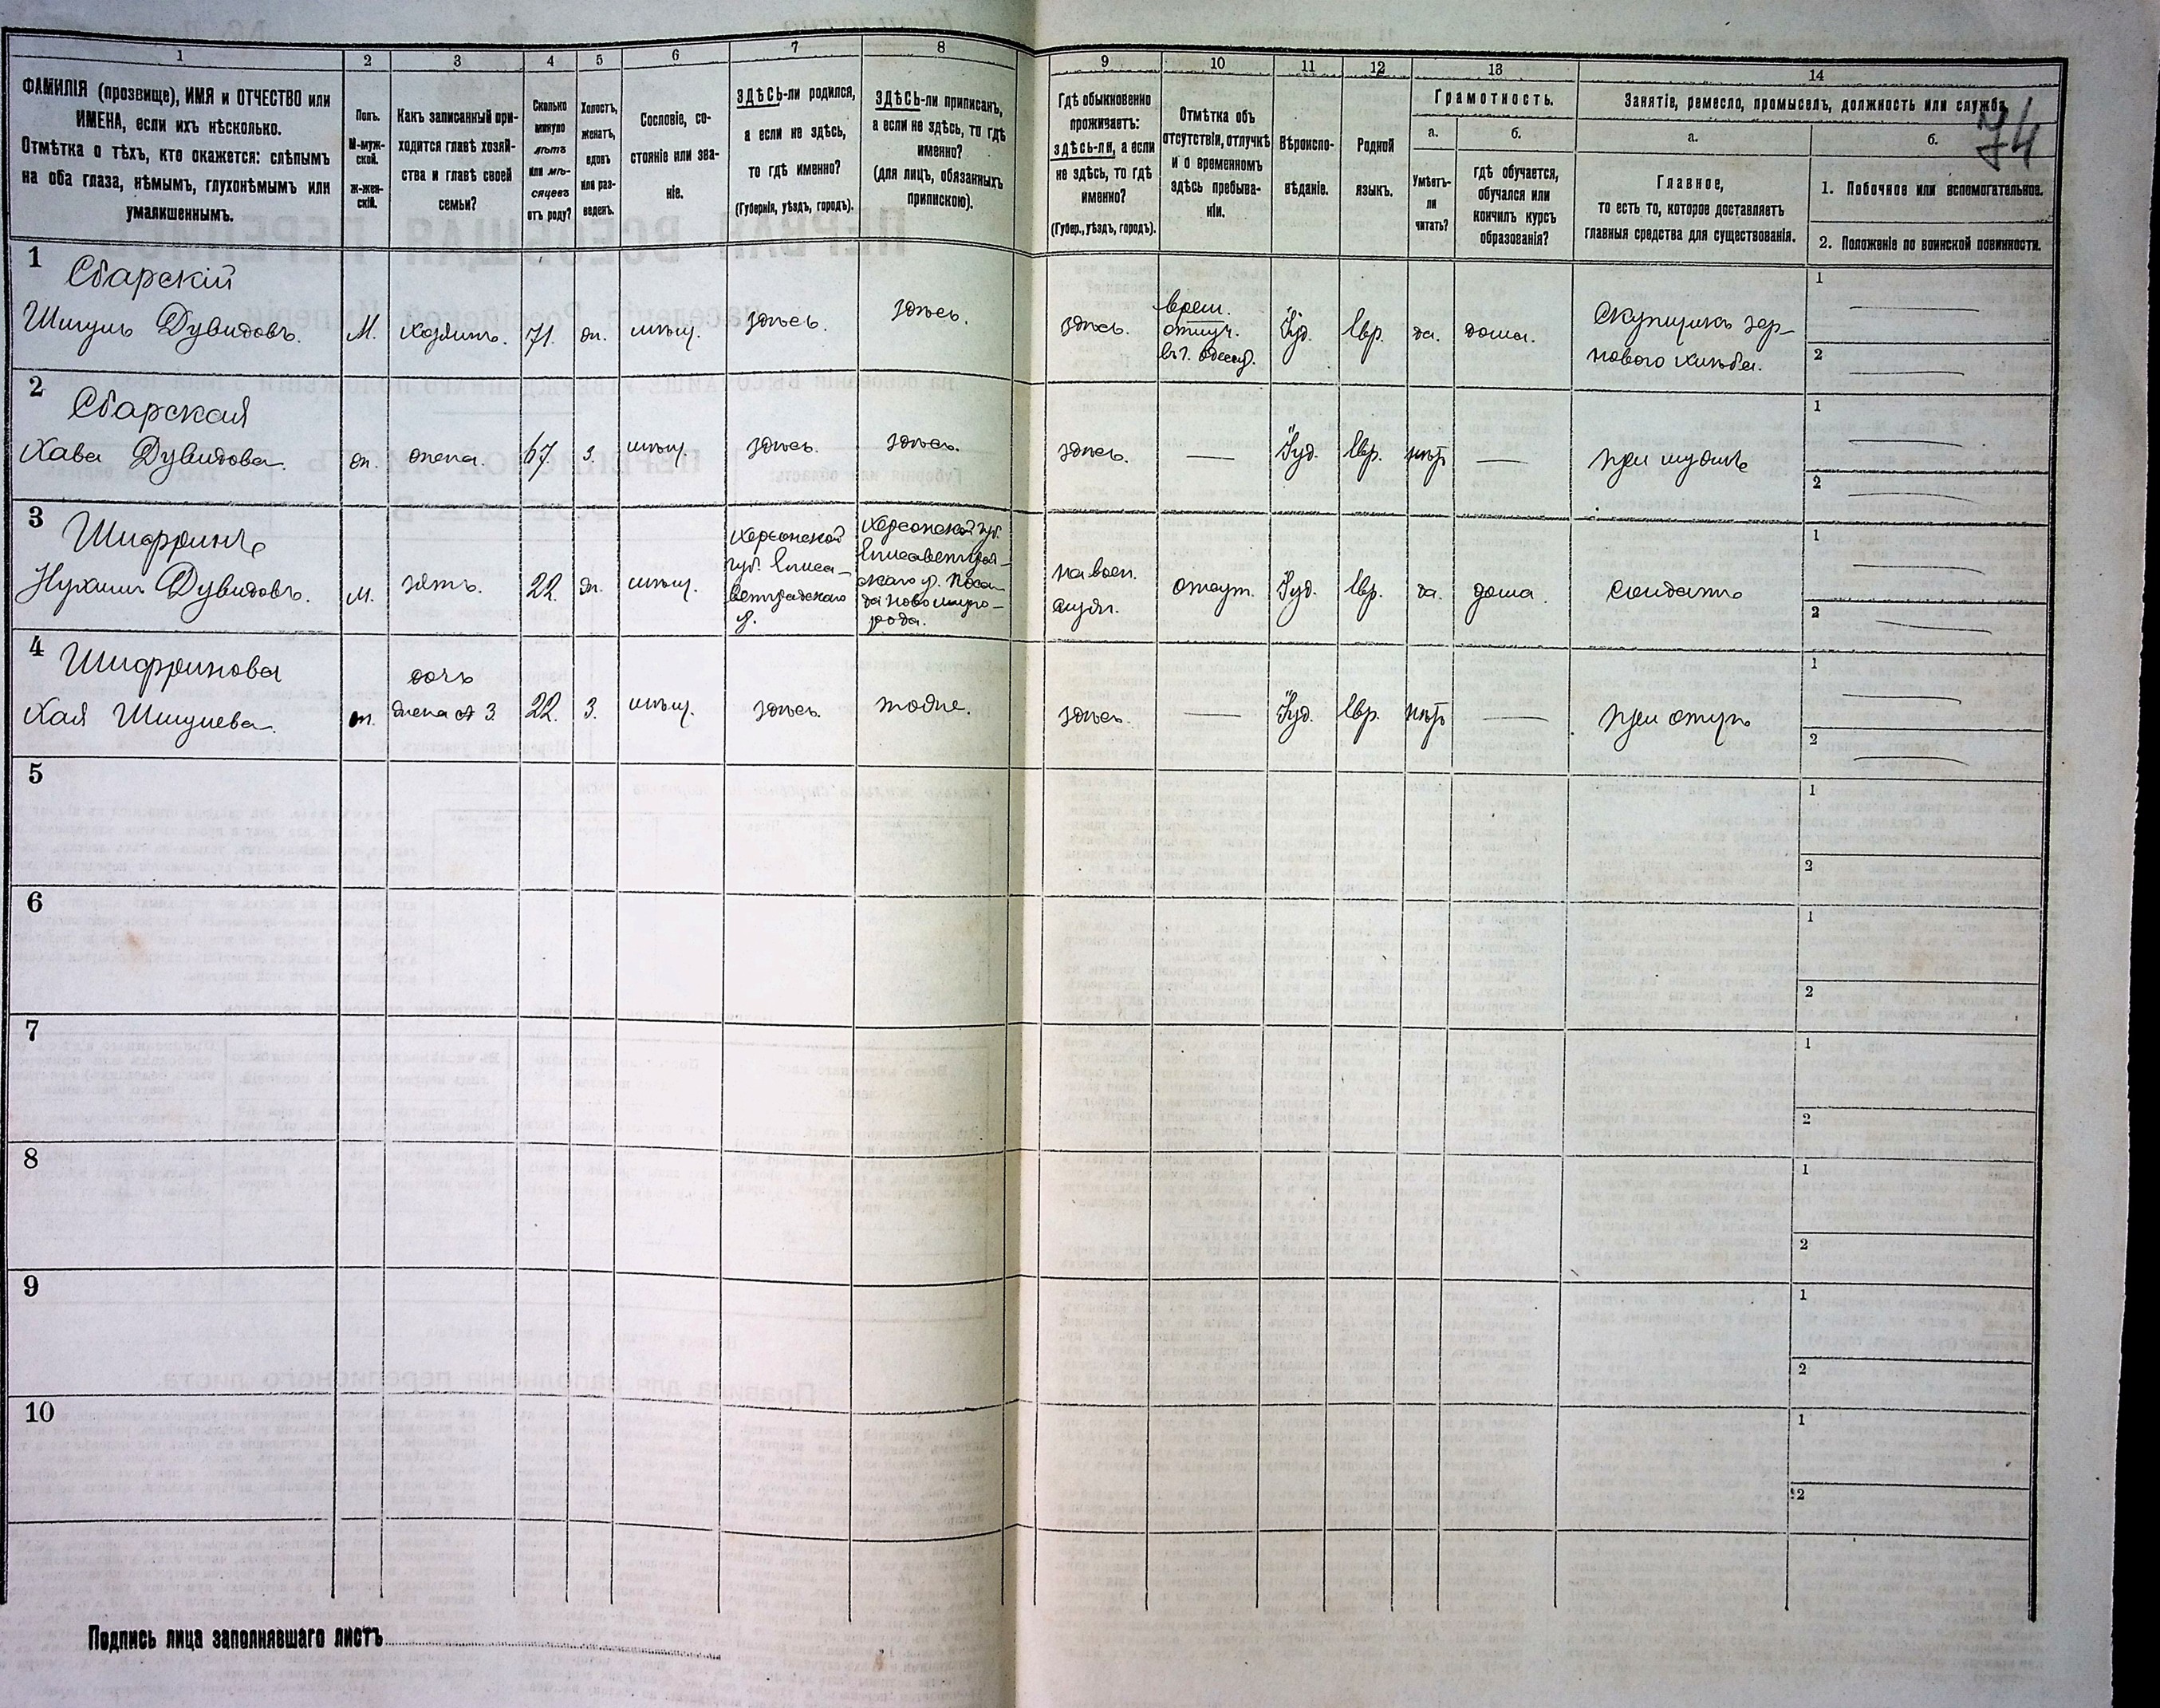 1 2 3 4 5 6 7 8 9 10 11 12 13 14
ФАМИЛІЯ (прозвище), ИМЯ и ОТЧЕСТВО или
ИМЕНА, если ихъ нѣсколько.
Отмѣтка о тѣхъ, кто окажется: слѣпымъ
на оба глаза, нѣмымъ, глухонѣмымъ или
умалишеннымъ.
Полъ.
М-муж-
ской.
Ж-жен-
скій.
Какъ записанный при-
ходится главѣ хозяй-
ства и главѣ своей
семьи?
Сколько
минуло
лѣтъ
или мѣ-
сяцевъ
отъ роду?
Холостъ,
женатъ,
вдовъ
или раз-
веденъ.
Сословіе, со-
стояніе или зва-
ніе.
ЗДѢСЬ-ли родился,
а если не здѣсь,
то гдѣ именно?
(Губернія, уѣздъ, городъ).
ЗДѢСЬ-ли приписанъ,
а если не здѣсь, то гдѣ
именно?
(для лицъ, обязанныхъ
припискою).
Гдѣ обыкновенно
проживаетъ:
здѣсь-ли, а если
не здѣсь, то гдѣ
именно?
(Губер., уѣздъ, городъ).
Отмѣтка объ
отсутствіи, отлучкѣ
и о временномъ
здѣсь пребыва-
ніи.
Вѣроиспо-
вѣданіе.
Родной
языкъ.
Грамотность.
а.
Умѣетъ-
ли
читать?
б.
гдѣ обучается,
обучался или
кончилъ курсъ
образованія?
Занятіе, ремесло, промыселъ, должность или служба.
74
а.
Главное,
то есть то, которое доставляетъ
главныя средства для существованія.
б.
1. Побочное или вспомогательное.
2. Положеніе по воинской повинности.
1
Сбарскій
Шмуль Дувидовъ.
М.
хозяинъ.
71.
ж.
мѣщ.
здѣсь.
здѣсь.
здѣсь.
врем.
отлуч.
въ г. Одессу.
Іуд.
Евр.
да.
дома.
Скупщикъ зер-
нового хлѣба.
1
2
2
Сбарская
Хава Дувидова.
ж.
жена.
67.
з.
мѣщ.
здѣсь.
здѣсь.
здѣсь.
Іуд.
Евр.
нѣтъ
при мужѣ
1
2
3
Шифринъ
Нухимъ Дувидовъ.
М.
зять.
22.
ж.
мѣщ.
Херсонской
губ. Елиса-
ветградскаго
у.
Херсонской губ.
Елисаветград-
скаго у. Поса-
да Новомирго-
рода.
на воен.
служ.
отсут.
Іуд.
Евр.
да.
дома.
солдатъ
1
2
4
Шифринова
Хая Шмулева.
ж.
дочь
жена № 3.
22.
з.
мѣщ.
здѣсь.
тоже.
здѣсь.
Іуд.
Евр.
нѣтъ
при отцѣ
1
2
5
1
2
6
1
2
7
1
2
8
1
2
9
1
2
10
1
2
Подпись лица заполнявшаго листъ